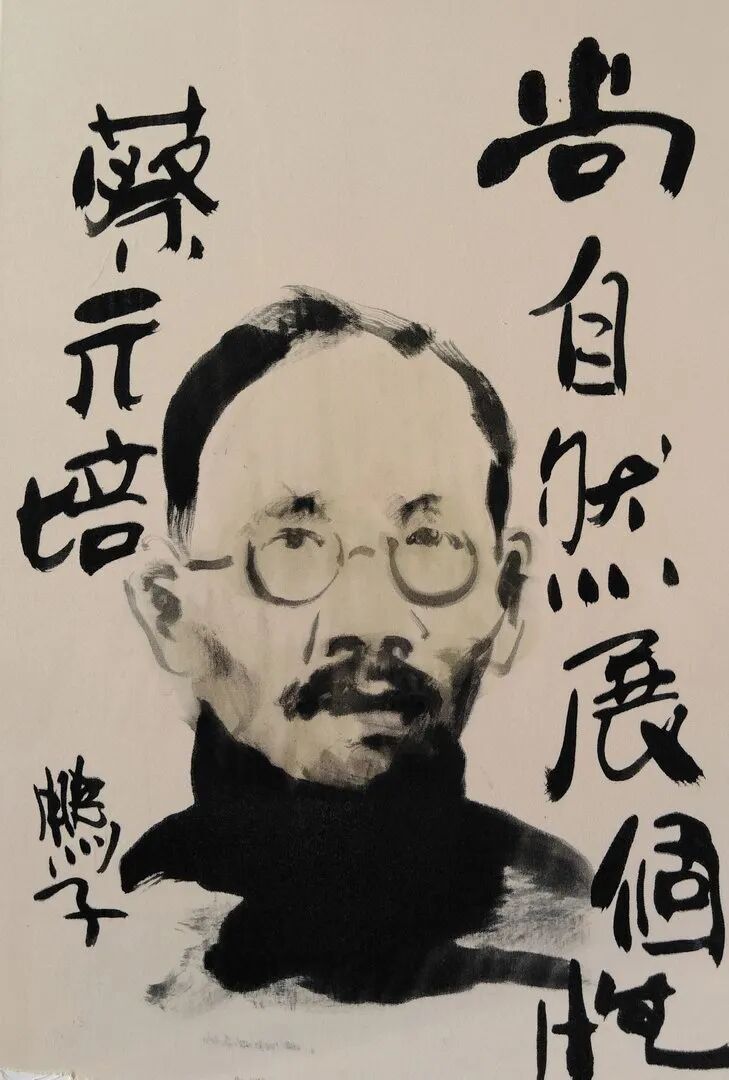 尚自然展個性
蔡元培
鵬子